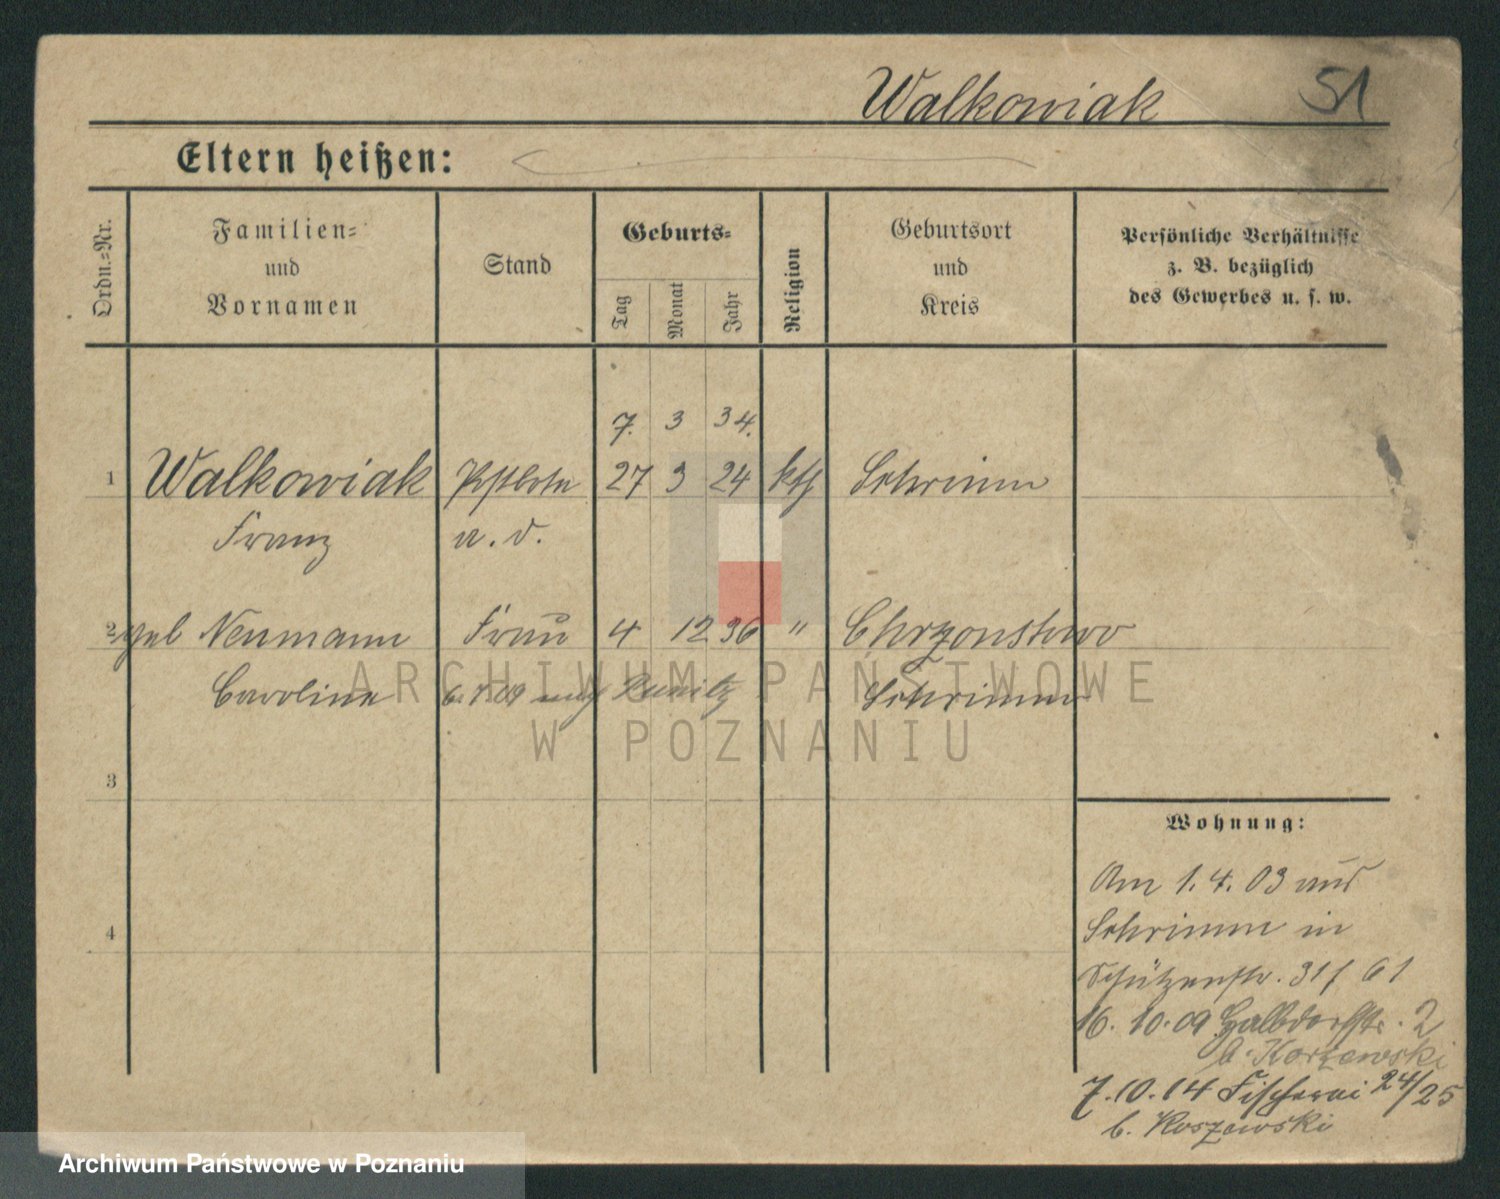 Walkowiak 51
Eltern heißen:
Ordn.-Nr.
Familien-
und
Vornamen
Stand
Geburts-
Tag
Monat
Jahr
Religion
Geburtsort
und
Kreis
Persönliche Verhältnisse
z. B. bezüglich
des Gewerbes u. s. w.
7. 3 34.
1 Walkowiak Postbote 27 3 24 kth Schrimm
Franz a. D.
2 geb Neumann Frau 4 12 36 " Chrzonstowo
Caroline Schrimm
ARCHIWUM PAŃSTWOWE
W POZNANIU
3
4
Wohnung:
Am 1.4.03 aus
Schrimm in
Schützenstr. 31 / 61
16. 10. 09 Halbdorfstr. 2
b. Korzewski
7.10.14 Fischerei 24/25
b. Koszewski
Archiwum Państwowe w Poznaniu